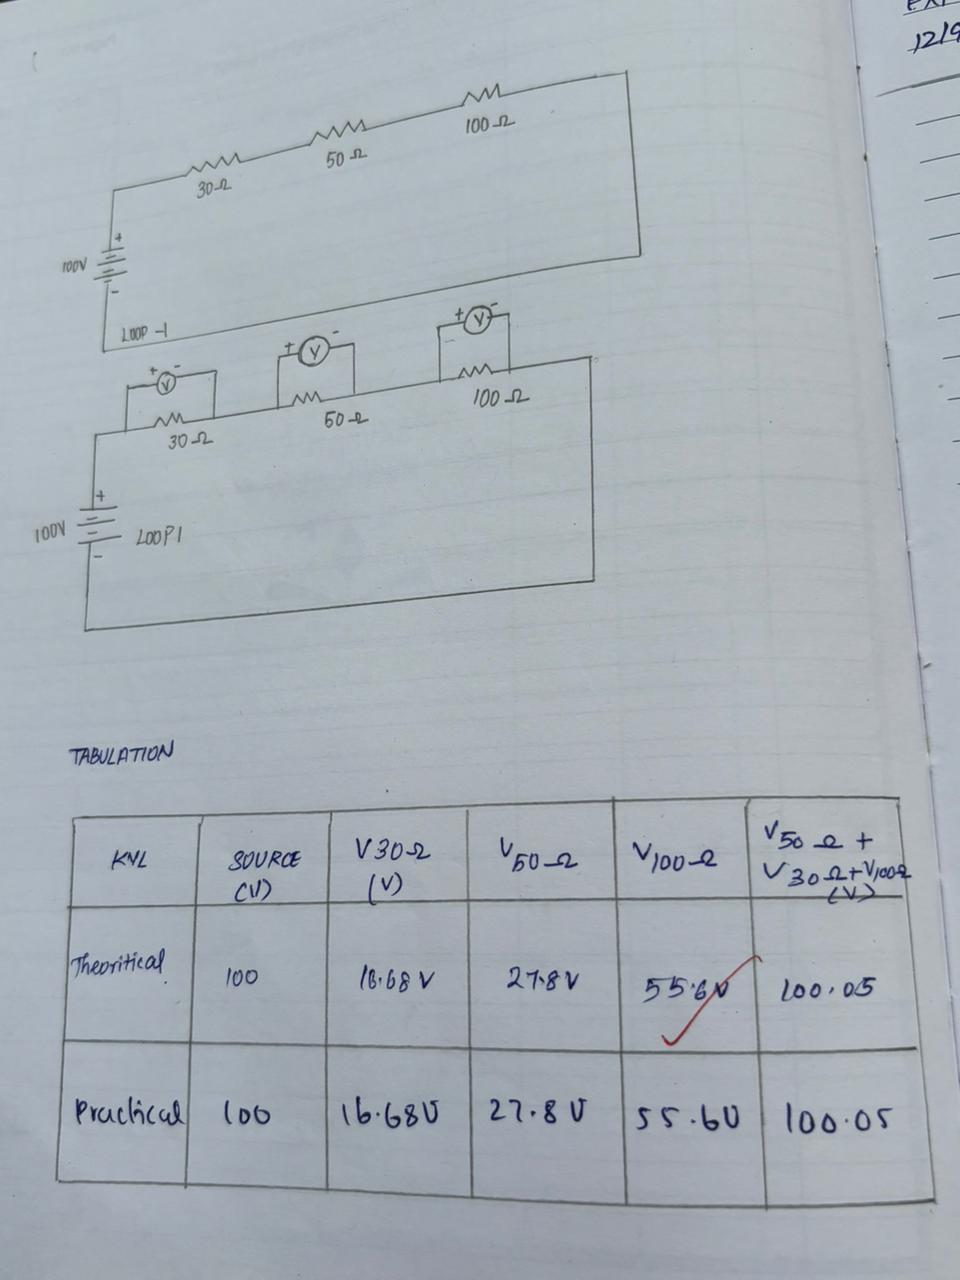 12/9
100Ω
50Ω
30Ω
+
100V
-
LOOP-1
+ V -
+ V -
+ V -
100Ω
50Ω
30Ω
+
100V
LOOP1
-
TABULATION
KVL SOURCE (V) V30Ω (V) V50Ω V100Ω V50Ω + V30Ω+V100Ω (V)
Theoritical 100 16.68V 27.8V 55.6V 100.05
Practical 100 16.68V 27.8V 55.6V 100.05